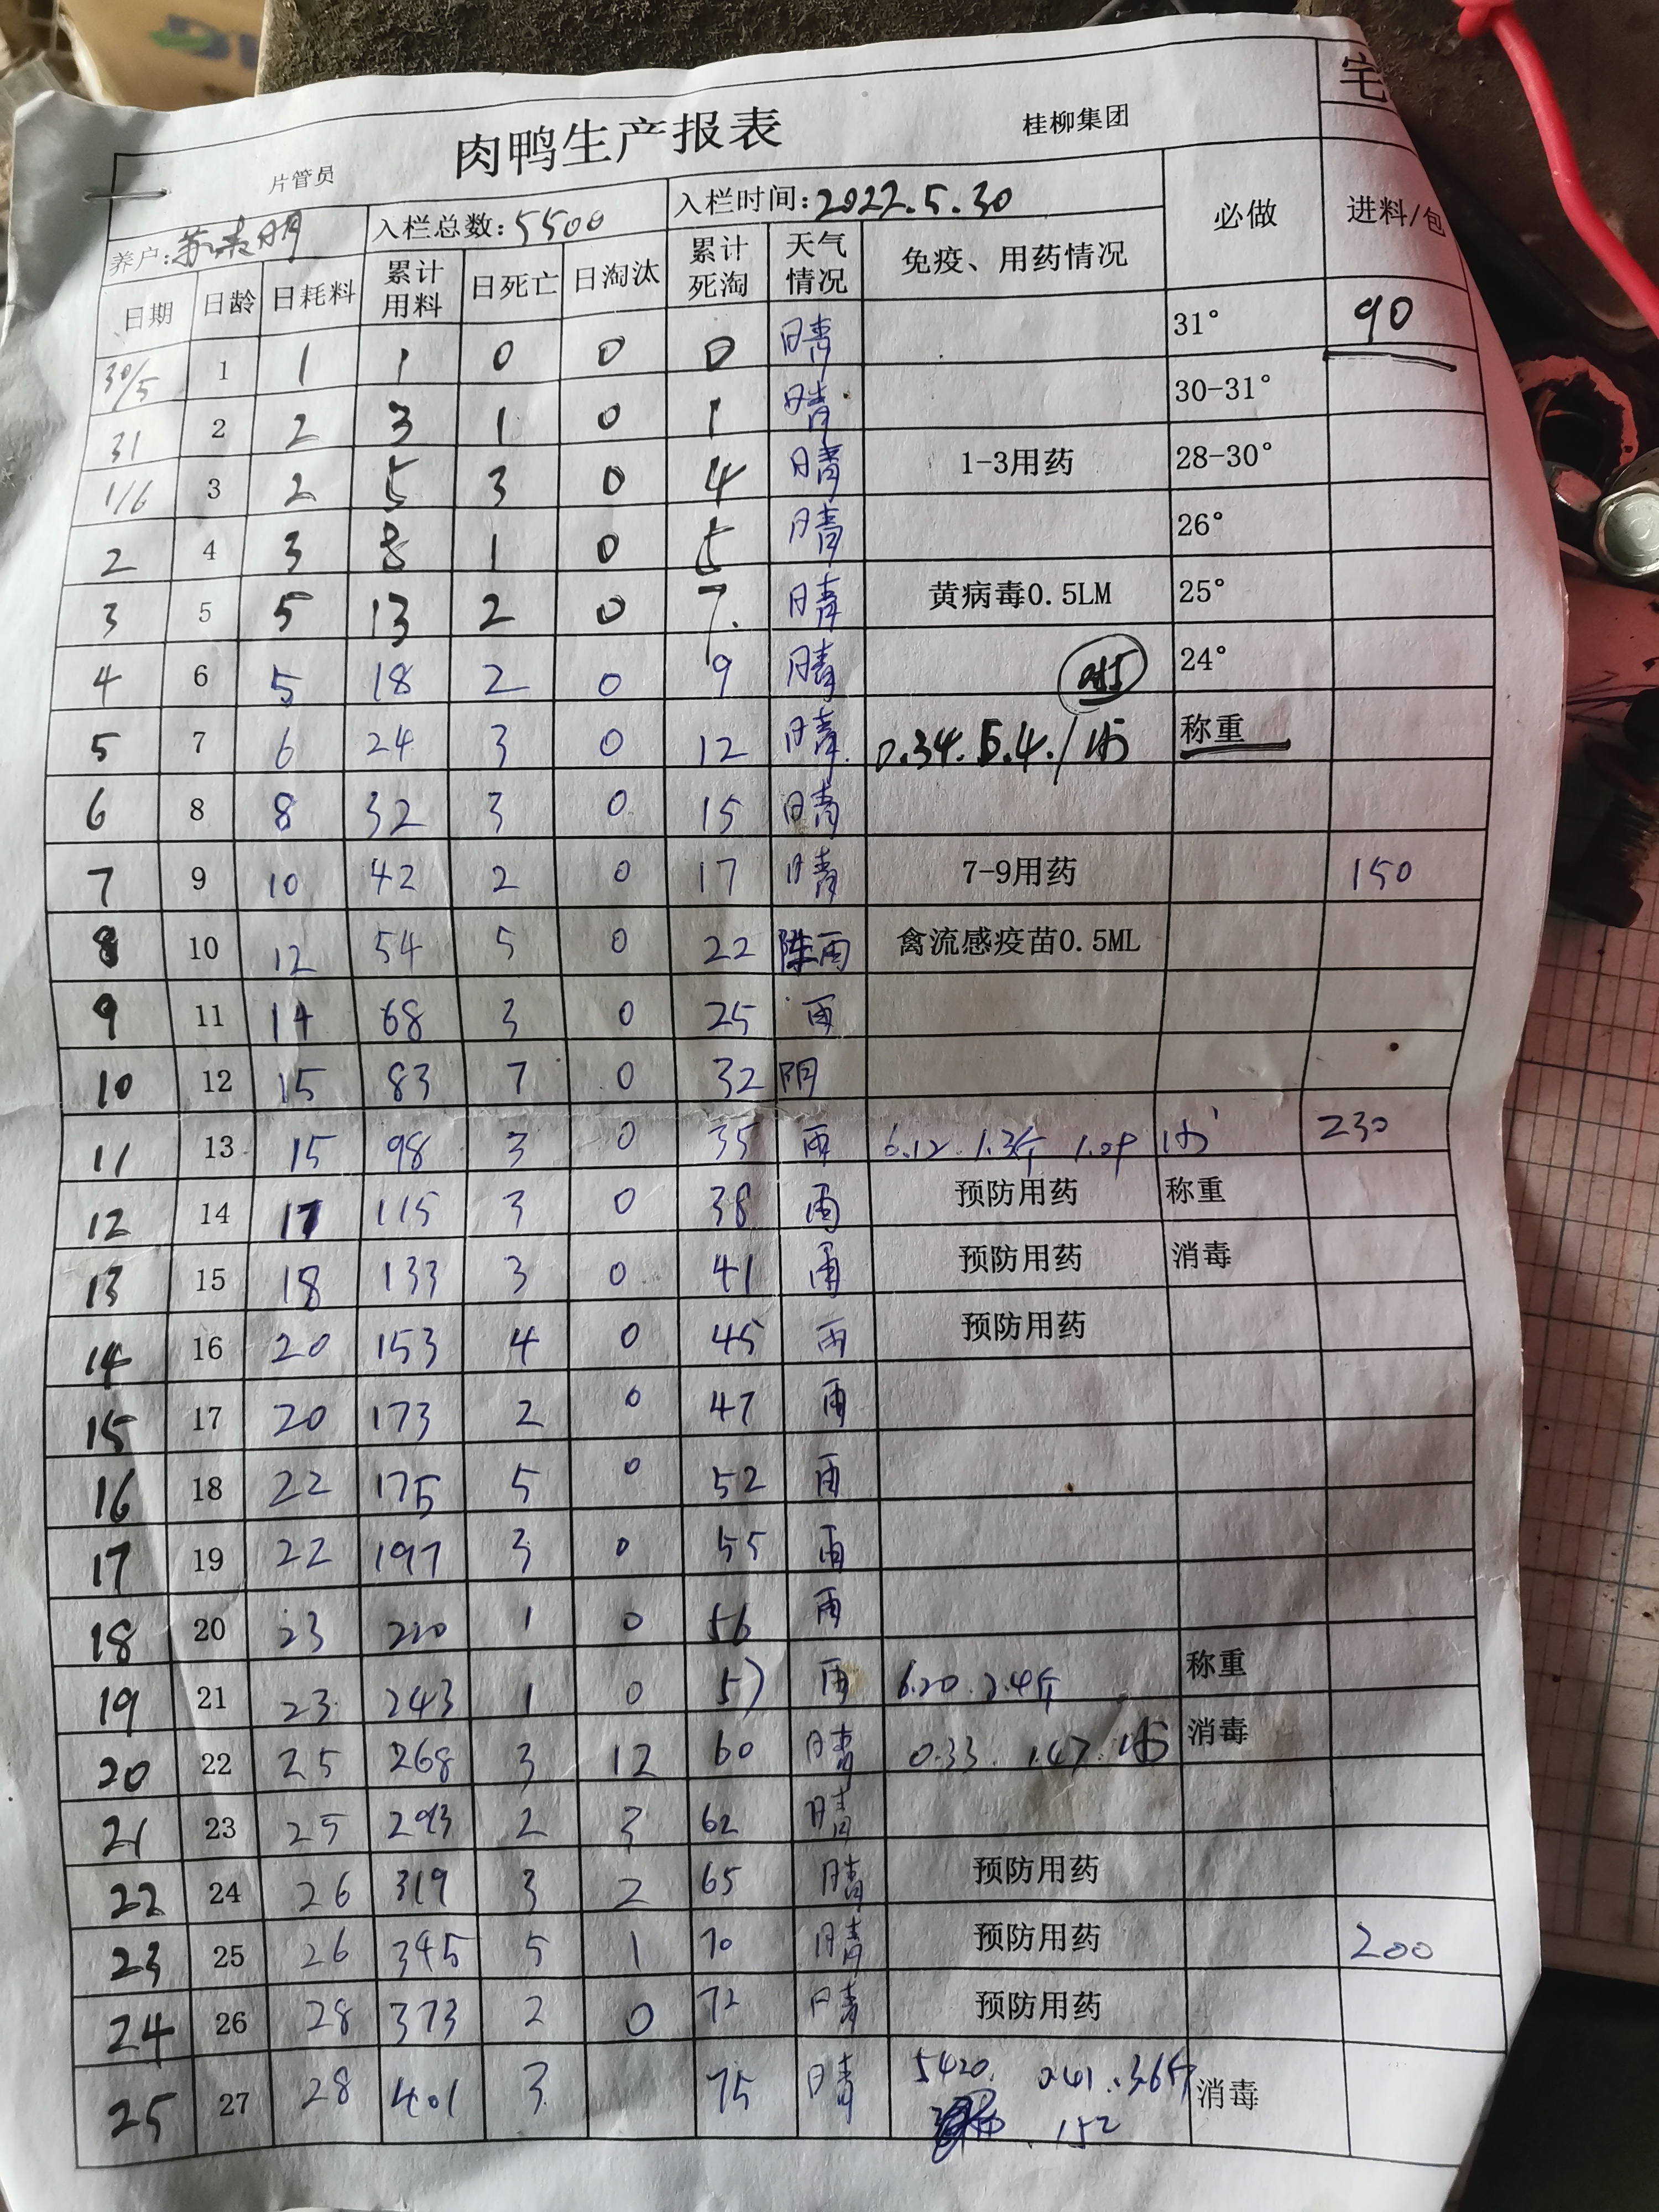 宅
肉鸭生产报表
片管员 桂柳集团
养户: 入栏总数:5500 入栏时间:2022.5.30 必做 进料/包
日期 日龄 日耗料 累计用料 日死亡 日淘汰 累计死淘 天气情况 免疫、用药情况
30/5 1 1 1 0 0 0 晴 31° 90
31 2 2 3 1 0 1 晴 30-31°
1/6 3 2 5 3 0 4 晴 1-3用药 28-30°
2 4 3 8 1 0 5 晴 26°
3 5 5 13 2 0 7. 晴 黄病毒0.5LM 25°
4 6 5 18 2 0 9 晴 24°
5 7 6 24 3 0 12 晴 0.34. 称重
6 8 8 32 3 0 15 晴
7 9 10 42 2 0 17 晴 7-9用药 150
8 10 12 54 5 0 22 阵雨 禽流感疫苗0.5ML
9 11 14 68 3 0 25 雨
10 12 15 83 7 0 32 阴
11 13 15 98 3 0 35 雨 6.12. 1.3斤 230
12 14 17 115 3 0 38 雨 预防用药 称重
13 15 18 133 3 0 41 雨 预防用药 消毒
14 16 20 153 4 0 45 雨 预防用药
15 17 20 173 2 0 47 雨
16 18 22 175 5 0 52 雨
17 19 22 197 3 0 55 雨
18 20 23 220 1 0 56 雨
19 21 23 243 1 0 57 雨 6.20. 2.4斤 称重
20 22 25 268 3 12 60 晴 0.33. 1.47. 消毒
21 23 25 293 2 3 62 晴
22 24 26 319 3 2 65 晴 预防用药
23 25 26 345 5 1 70 晴 预防用药 200
24 26 28 373 2 0 72 晴 预防用药
25 27 28 401 3 75 晴 5420. 消毒
152